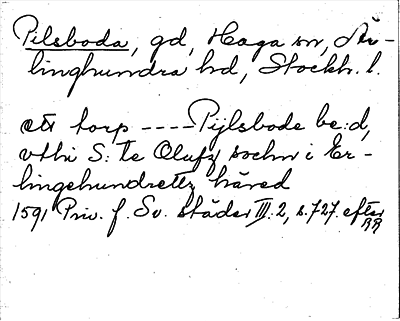 Pilsboda, gd, Haga sn, Är-
linghundra hd, Stockh. l.
ett torp ---- Pijlsbode be:d,
vthi S: te Oluffz sochn i Er-
lingehundrettz häred
1591 Priv. f. Sv. städer III: 2, s. 727. efter
RR